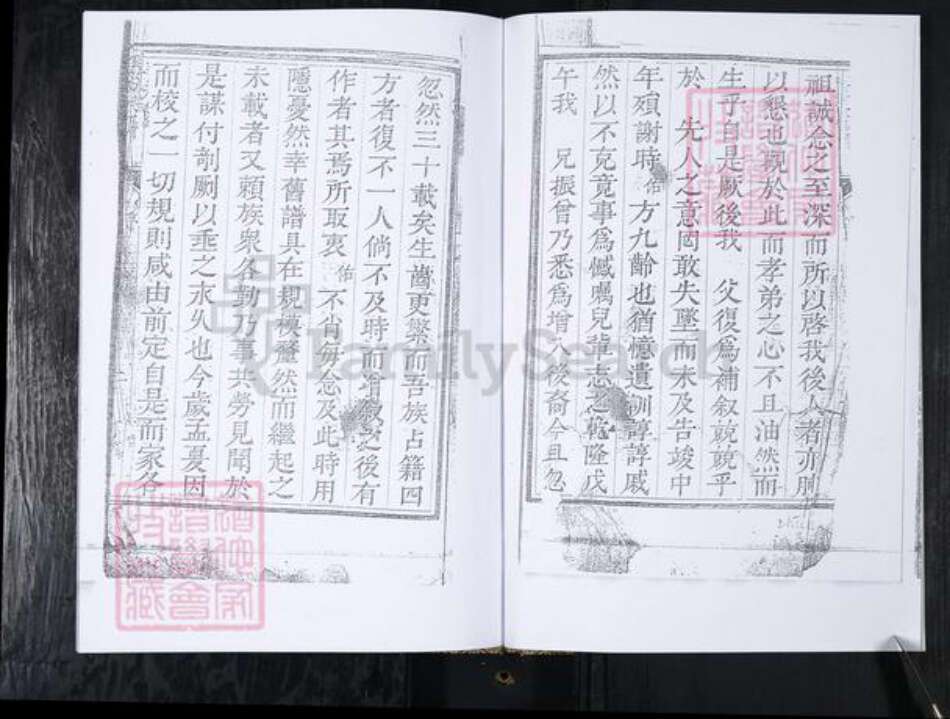 祖誠念之至深而所以啓我後人者亦
以懇也觀於此而孝弟之心不且油然而
生乎自是厥後我 父復爲補叙兢兢乎
於 先人之意罔敢失墜而未及告竣中
年殞謝時佑方九齡也猶憶遺訓諄諄戚
然以不克竟事爲憾囑兒輩志之乾隆戊
午我 兄振曾乃悉爲增入後裔今且忽
忽然三十載矣生齒更蘩而吾族占籍四
方者復不一人倘不及時而增叙之後有
作者其焉所取衷 佑 不肖每念及此時用
隱憂然幸舊譜具在規模釐然而繼起之
未載者又頼族衆各勤乃事共勞見聞於
是謀付剞劂以垂之永久也今歲孟夏因
而校之一切規則咸由前定自是而家各
FamilySearch